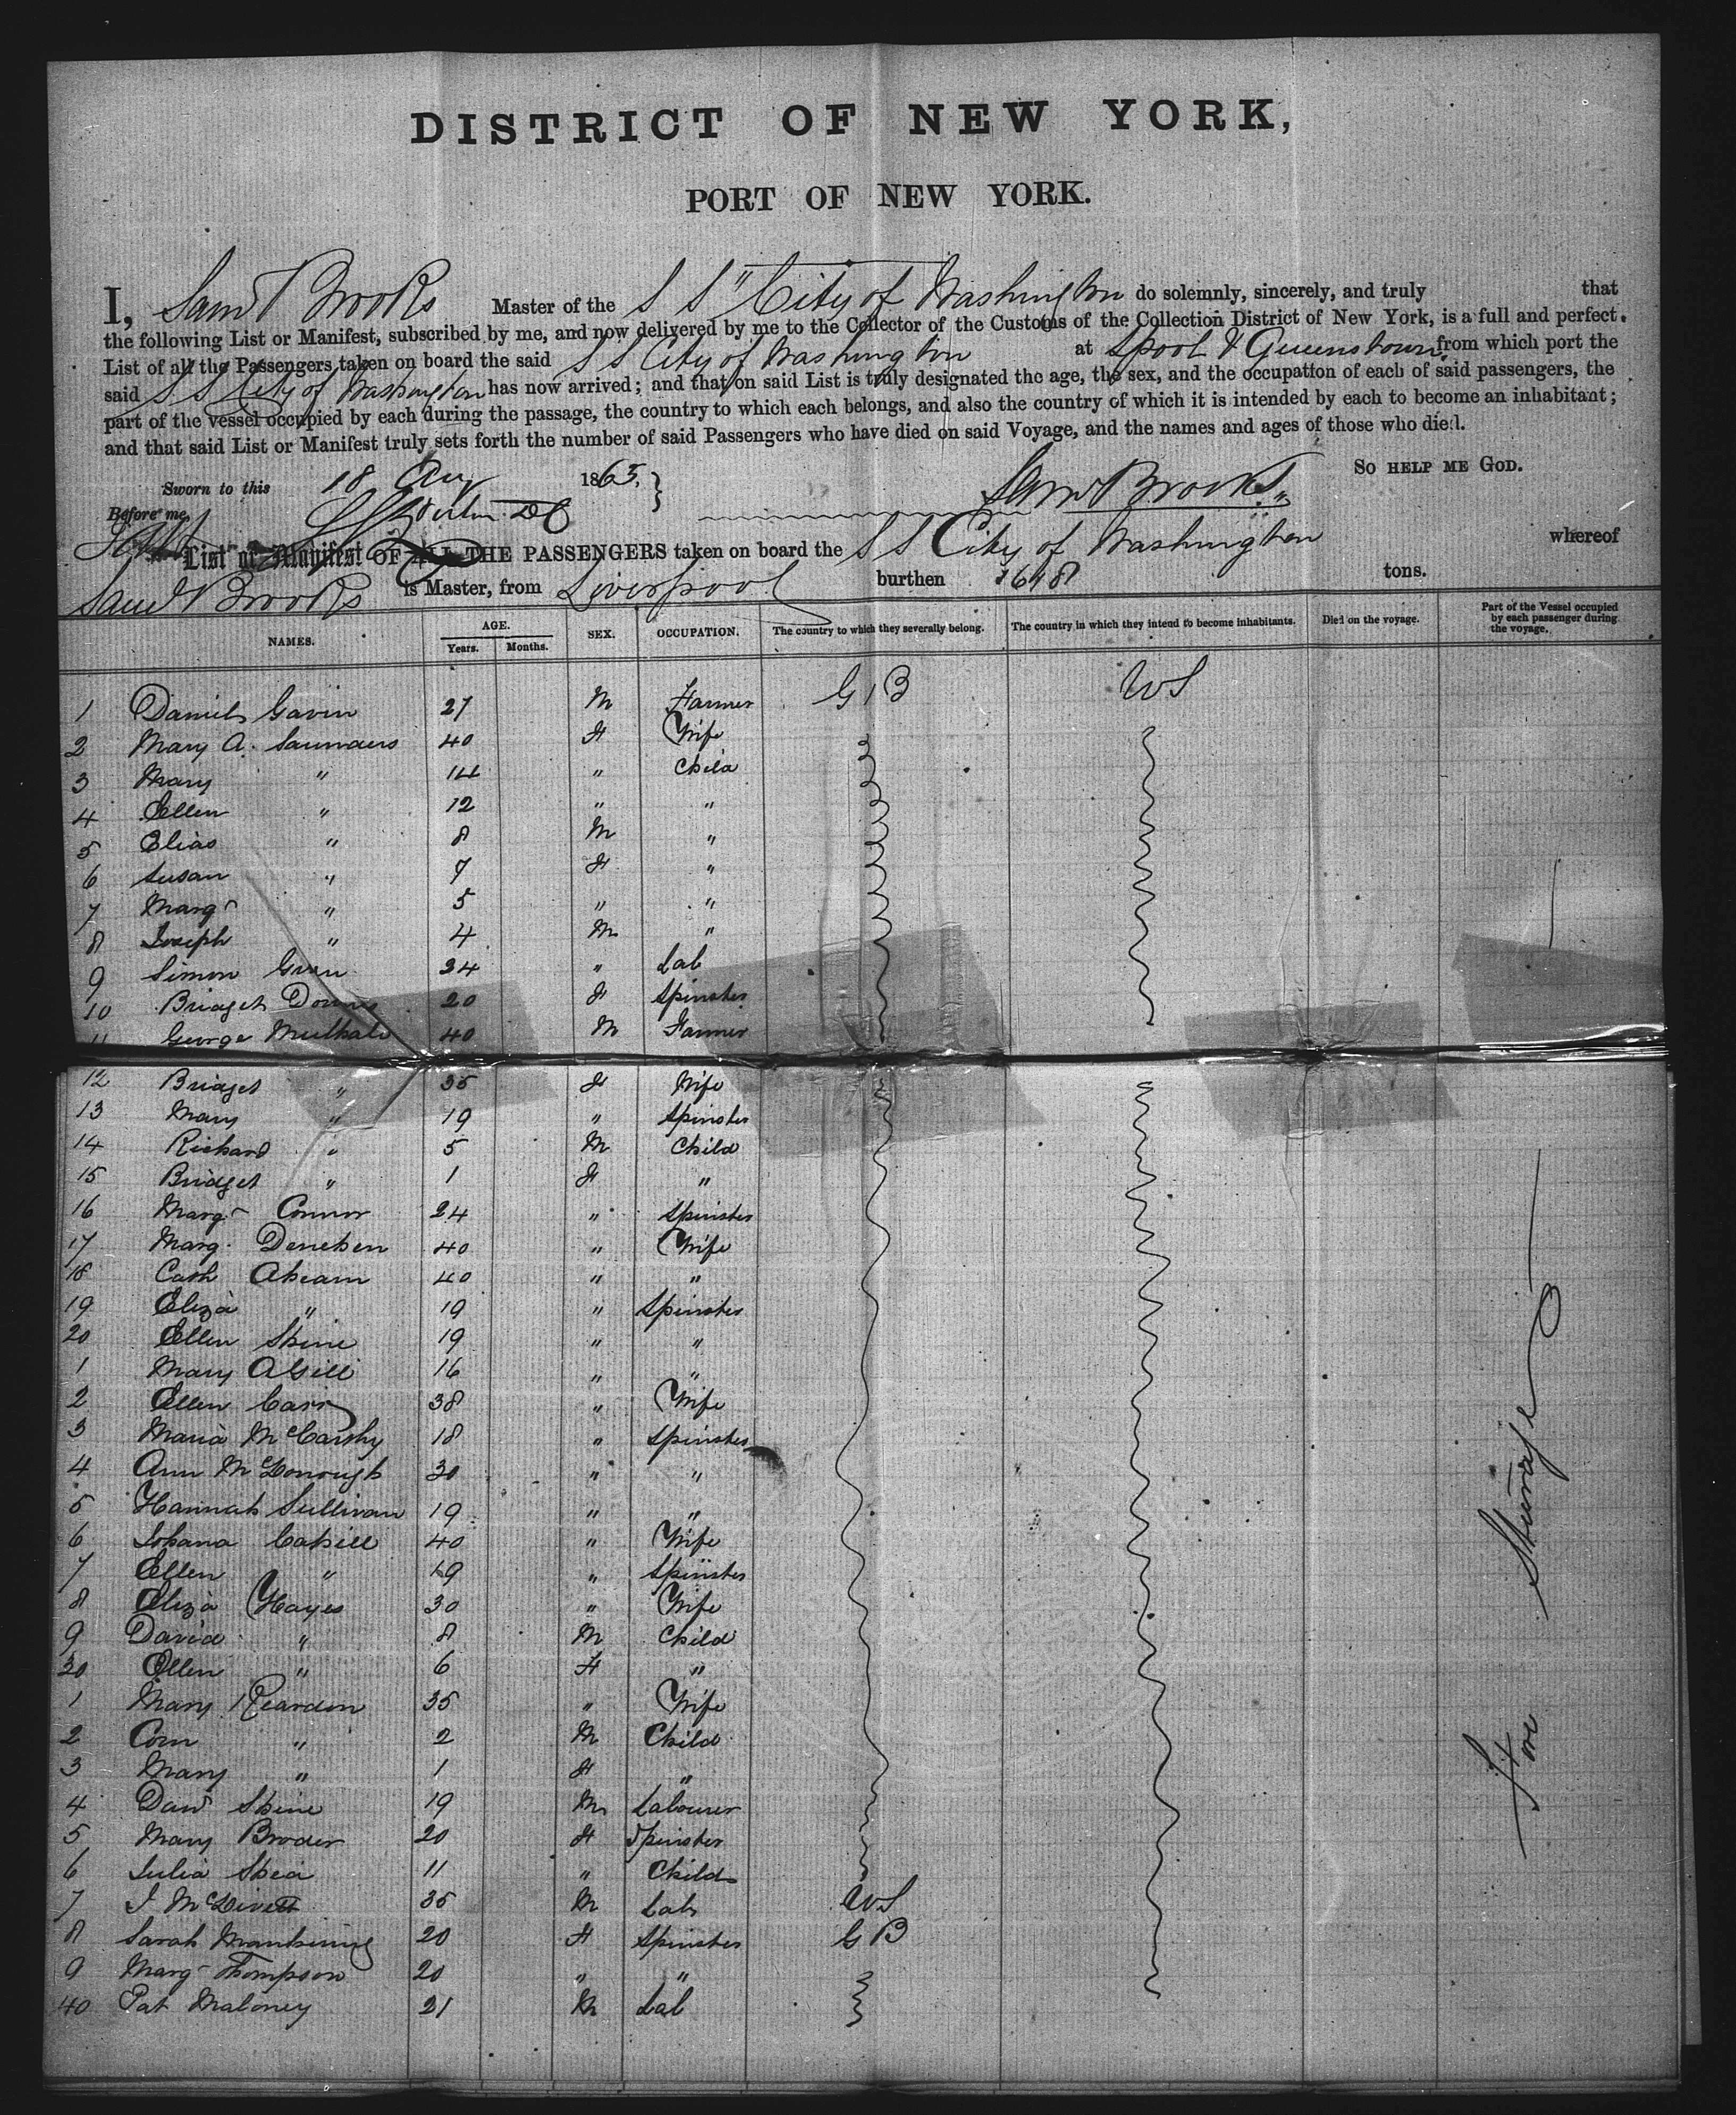 DISTRICT OF NEW YORK,
PORT OF NEW YORK.
I, Saml Brooks Master of the S S "City of Washington do solemnly, sincerely, and truly that
the following List or Manifest, subscribed by me, and now delivered by me to the Collector of the Customs of the Collection District of New York, is a full and perfect
List of all the Passengers taken on board the said S S City of Washington at Lpool & Queenstown from which port the
said S S City of Washington has now arrived; and that on said List is truly designated the age, the sex, and the occupation of each of said passengers, the
part of the vessel occupied by each during the passage, the country to which each belongs, and also the country of which it is intended by each to become an inhabitant;
and that said List or Manifest truly sets forth the number of said Passengers who have died on said Voyage, and the names and ages of those who died.
SO HELP ME GOD.
Sworn to this 18 Aug 1865. }
Saml Brooks
Before me,
List or Manifest OF ALL THE PASSENGERS taken on board the S S City of Washington whereof
Saml Brooks is Master, from Liverpool burthen tons.
NAMES. AGE. Years. Months. SEX. OCCUPATION. The country to which they severally belong. The country in which they intend to become inhabitants. Died on the voyage. Part of the Vessel occupied by each passenger during the voyage.
1 Daniel Gavin 27 M Farmer G B US
2 Mary A. Saunders 40 F Wife
3 Mary " 14 " Child
4 Ellen " 12 " "
5 Elias " 8 M "
6 Susan " 7 F "
7 Margt " 5 " "
8 Joseph " 4 M "
9 Simon 24 " Lab
10 Bridget Downs 20 F Spinster
11 George Mulhall 40 M Farmer
12 Bridget " 35 F Wife
13 Mary " 19 " Spinster
14 Richard " 5 M Child
15 Bridget " 1 F "
16 Margt Connor 24 " Spinster
17 Marg. 40 " Wife
18 Cath Ahearn 40 " "
19 Eliza " 19 " Spinster
20 Ellen Shine 19 " "
1 Mary A Gill 16 " "
2 Ellen Carr 38 " Wife
3 Maria McCarthy 18 " Spinster
4 Ann McDonough 30 " "
5 Hannah Sullivan 19 " "
6 Johana Cahill 40 " Wife
7 Ellen " 19 " Spinster
8 Eliza Hayes 30 " Wife
9 David " 8 M Child
30 Ellen " 6 F "
1 Mary Reardon 35 " Wife
2 Corn " 2 M Child
3 Mary " 1 F "
4 Danl Shine 19 M Labourer
5 Mary Broder 20 F Spinster
6 Julia Shea 11 " Child
7 J 35 M Lab US
8 Sarah 20 F Spinster G B
9 Margt Thompson 20 " "
40 Pat Maloney 21 M Lab
Fore Steerage